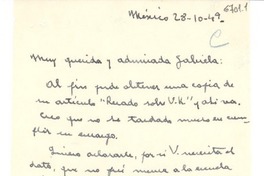 67011
México 28-10-49
C
Muy querida y admirada Gabriela:
Al fin pude obtener una copia de
mi artículo "Recado sobre V.K" y ahí va.
Creo que no he tardado mucho en cum-
plir su encargo.
Quiero aclararle, por si V. necesita el
dato, que no fuí nunca a la escuela